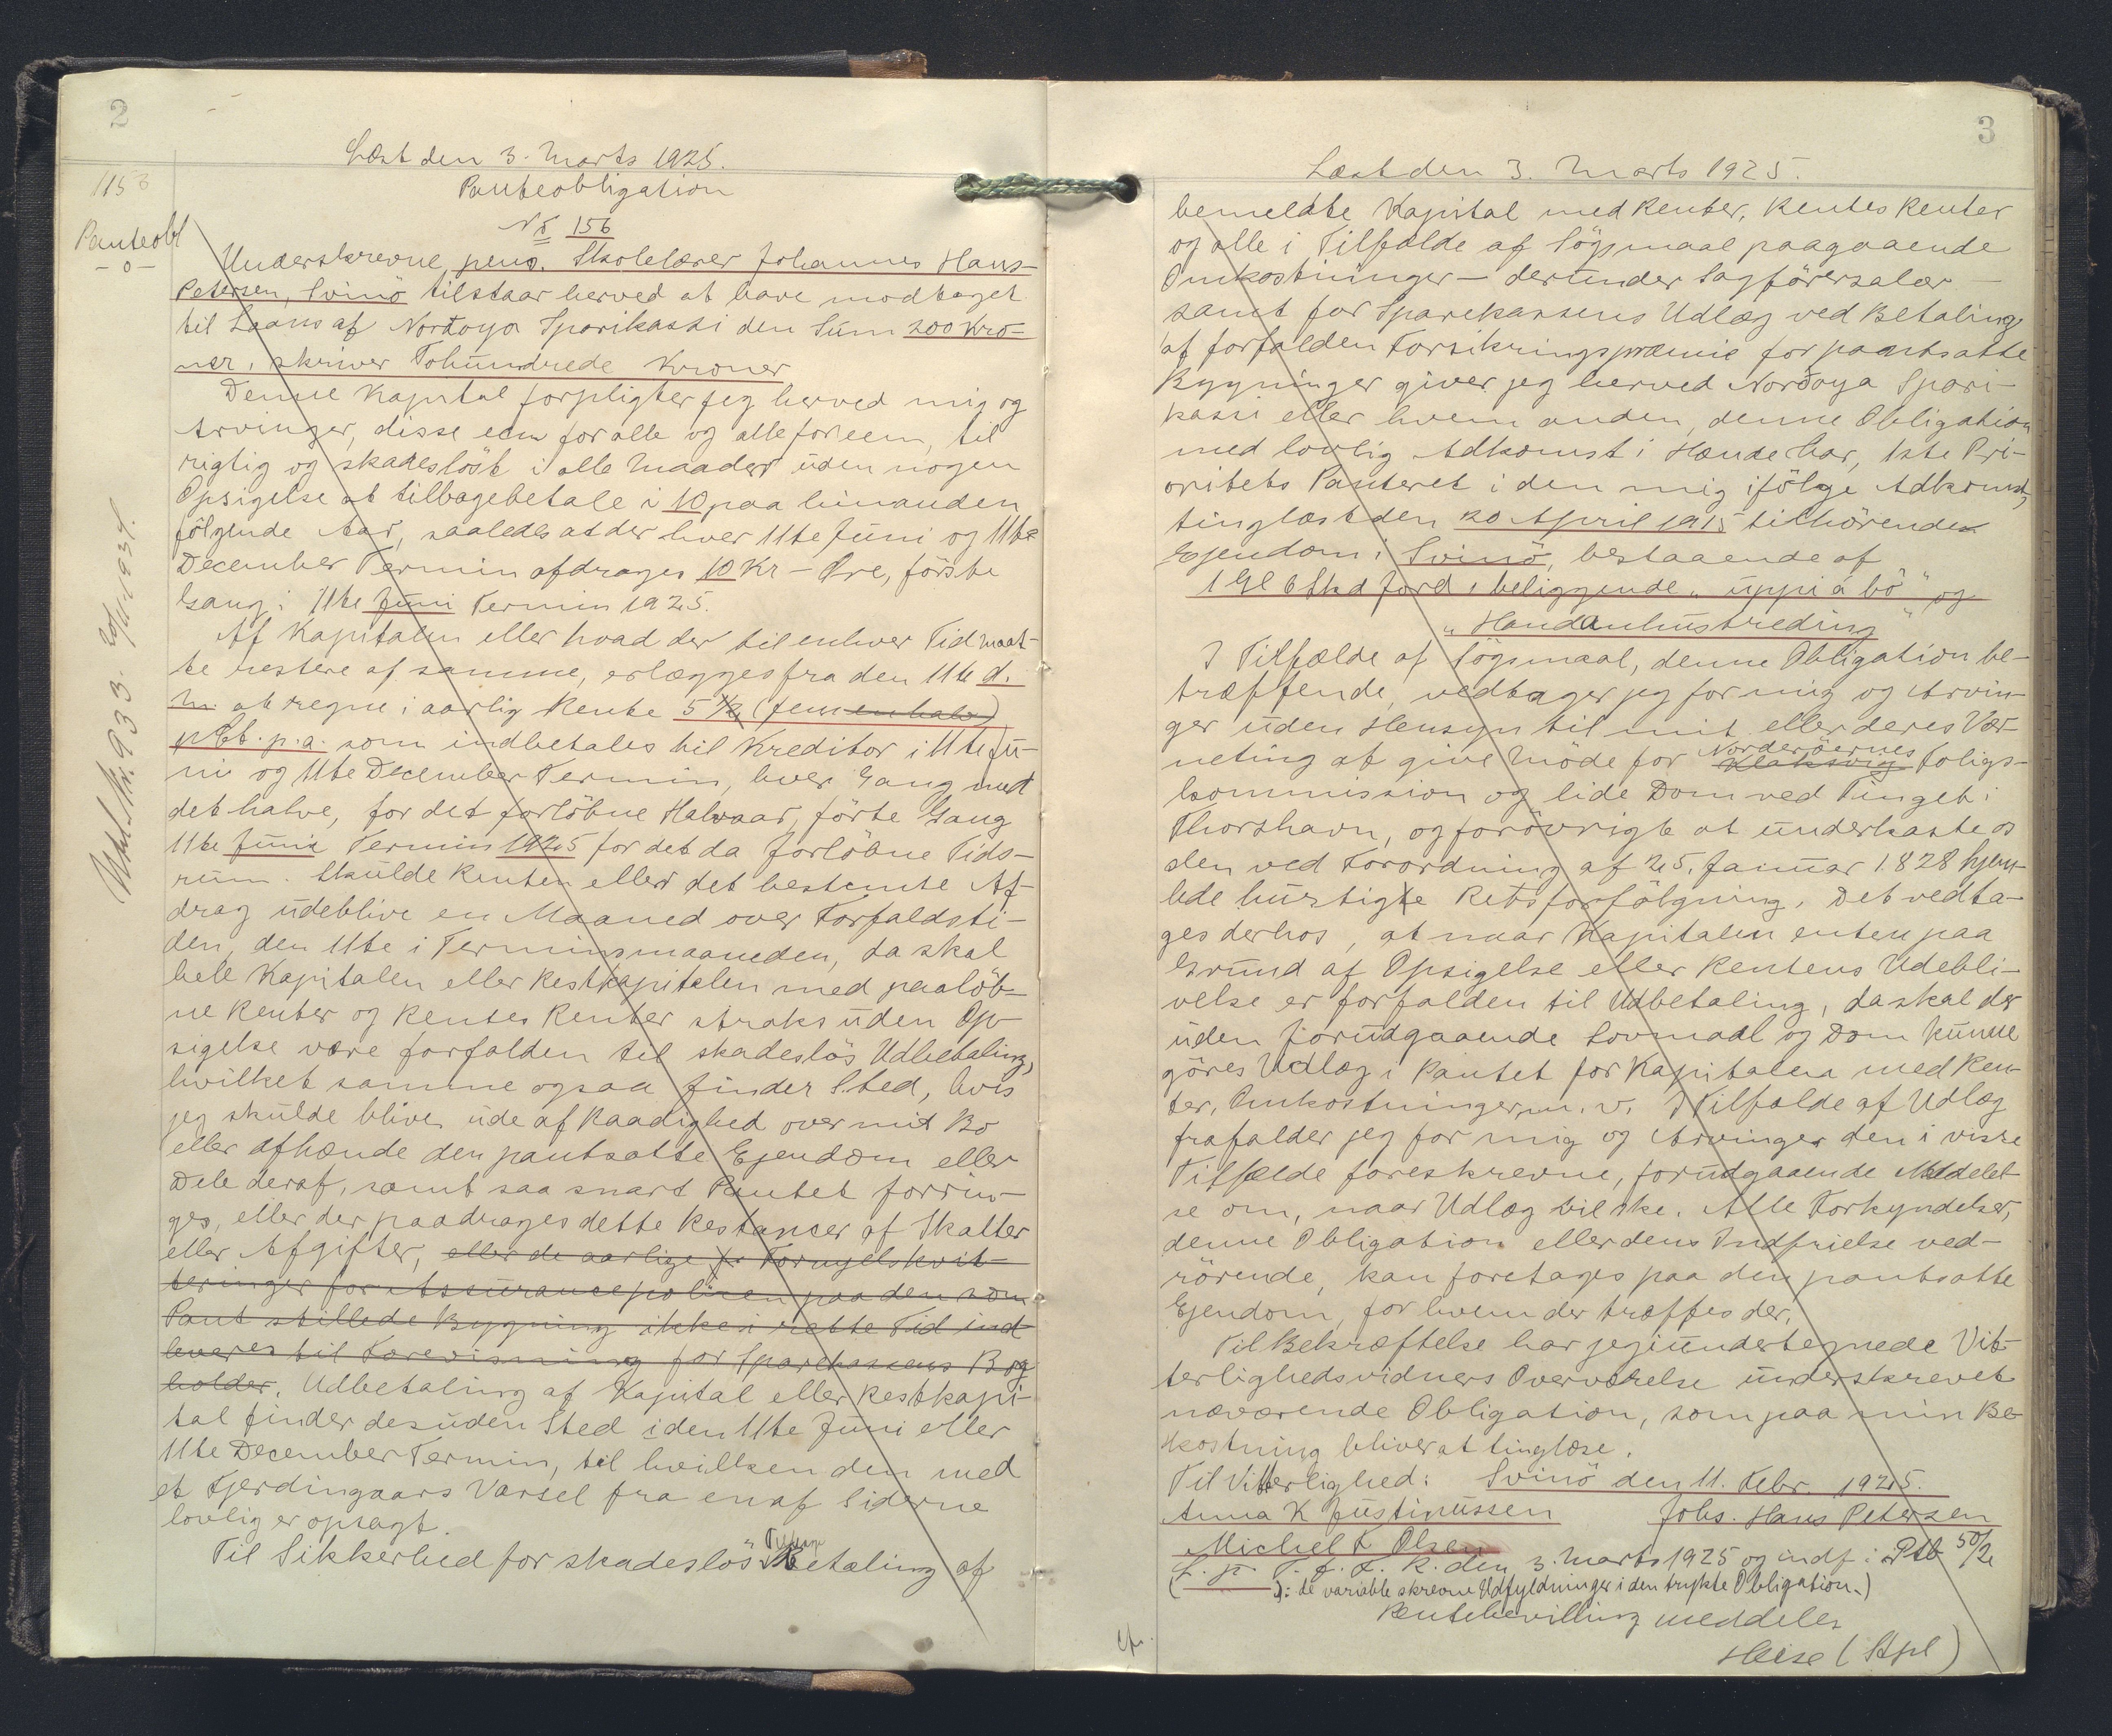 2
Læst den 3. Marts 1925.
Panteobligation
№ 156
1156
Panteobl
- o -
Udsl. Nr. 933. 20/11-1934.
Underskrevne, pens. Skolelærer Johannes Hans
Petersen, Svinö tilstaar herved at have modtaget
til Laans af Norðoya Sparikassi den Sum 200 Kro-
ner, skriver Tohundrede Kroner
Denne Kapital forpligter jeg herved mig og
Arvinger, disse een for alle og alle for een, til
rigtig og skadeslöst i alle Maader uden nogen
Opsigelse at tilbagebetale i 10 paa hinanden
fölgende Aar, saaledes at der hver 11te Juni og 11te
December Termin afdrages 10 Kr - Øre, förste
Gang i 11te Juni Termin 1925.
Af Kapitalen eller hvad der til enhver Tid maat-
te restere af samme, erlægges fra den 11te d.
M. at regne i aarlig Rente 5 ½ (fem en halv)
pCt. p.a. som indbetales til Kreditor i 11te Ju-
ni og 11te December Termin, hver Gang med
det halve, for det forlöbne Halvaar, förte Gang
11te Juni Termin 1925 for det da forlöbne Tids-
rum. Skulde Renten eller det bestemte Af-
drag udeblive en Maaned over Forfaldsti-
den, den 11te i Terminsmaaneden, da skal
hele Kapitalen eller Restkapitalen med paalöb-
ne Renter og Rentes Renter straks uden Op-
sigelse være forfalden til skadeslös Udbetaling,
hvilket samme ogsaa finder Sted, hvis
jeg skulde blive ude af Raadighed over mit Bo
eller afhænde den pantsatte Ejendom eller
Dele deraf, samt saa snart Pantet forrin-
ges, eller der paadrages dette Restancer af Skatter
eller Afgifter, eller de aarlige Fornyelskvit-
teringer for Assurancepolicen paa den som
Pant stillede Bygning ikke i rette Tid ind
leveres til Forevisning for Sparekassens Bog
holder. Udbetaling af Kapital eller Restkapi-
tal finder desuden Sted i den 11te Juni eller
11te December Termin, til hvilken den med
et Fjerdingaars Varsel fra en af Siderne
lovlig er opsagt.
Til Sikkerhed for skadeslös Betaling af
3
Læst den 3. Marts 1925.
bemeldte Kapital med Renter, Rentes Renter
og alle i Tilfælde af Sögsmaal paagaaende
Omkostninger - derunder Sagförersalær -
samt for Sparekassens Udlæg ved Betaling
af forfalden Forsikringspræmie for pantsatte
Bygninger giver jeg herved Norðoya Spari-
kassi eller hvem anden, denne Obligation
med lovlig Adkomst i Hænde har, 1ste Pri-
oritets Panteret i den mig ifölge Adkomst,
tinglæst den 20 April 1915 tilhörende
Ejendom i Svinö, bestaaende af
1 Gl 6 Skd Jord, beliggende "uppi á bö" og
"Handanhustreding"
I Tilfælde af Sögsmaal, denne Obligation be-
træffende, vedtager jeg for mig og Arvin-
ger uden Hensyn til mit eller deres Vær-
neting at give Möde for Klaksvig Norderöernes Foligs-
kommission og lide Dom ved Tinget i
Thorshavn, og forövrigt at underkaste os
den ved Forordning af 25. Januar 1828 hjem-
lede hurtige Retsforfölgning. Det vedta-
ges derhos, at naar Kapitalen enten paa
Grund af Opsigelse eller Rentens Udebli-
velse er forfalden til Udbetaling, da skal der
uden forudgaaende Lovmaal og Dom kunne
göres Udlæg i Pantet for Kapitalen med Ren-
ter, Omkostninger m. v. I Tilfælde af Udlæg
frafalder jeg for mig og Arvinger den i visse
Tilfælde foreskrevne, forudgaaende Meddelel-
se om, naar Udlæg vil ske. Alle Forkyndelser,
denne Obligation eller dens Indfrielse ved-
rörende, kan foretages paa den pantsatte
Ejendom, for hvem der træffes der.
Til Bekræftelse har jeg i undertegnede Vit-
terlighedsvidners Overværelse underskrevet
nærværende Obligation, som paa min Be-
kostning bliver at tinglæse.
Til Vitterlighed: Svinö den 11. Febr. 1925.
Anna K Justinussen Johs. Hans Petersen
Michel K Olsen
L. p. T. f. F. R. den 3. Marts 1925 og indf i Ptb 50/2
( ): de variable skrevne Udfyldninger i den trykte Obligation.)
Rentebevilling meddeles
Heise (Spl)
cfr.